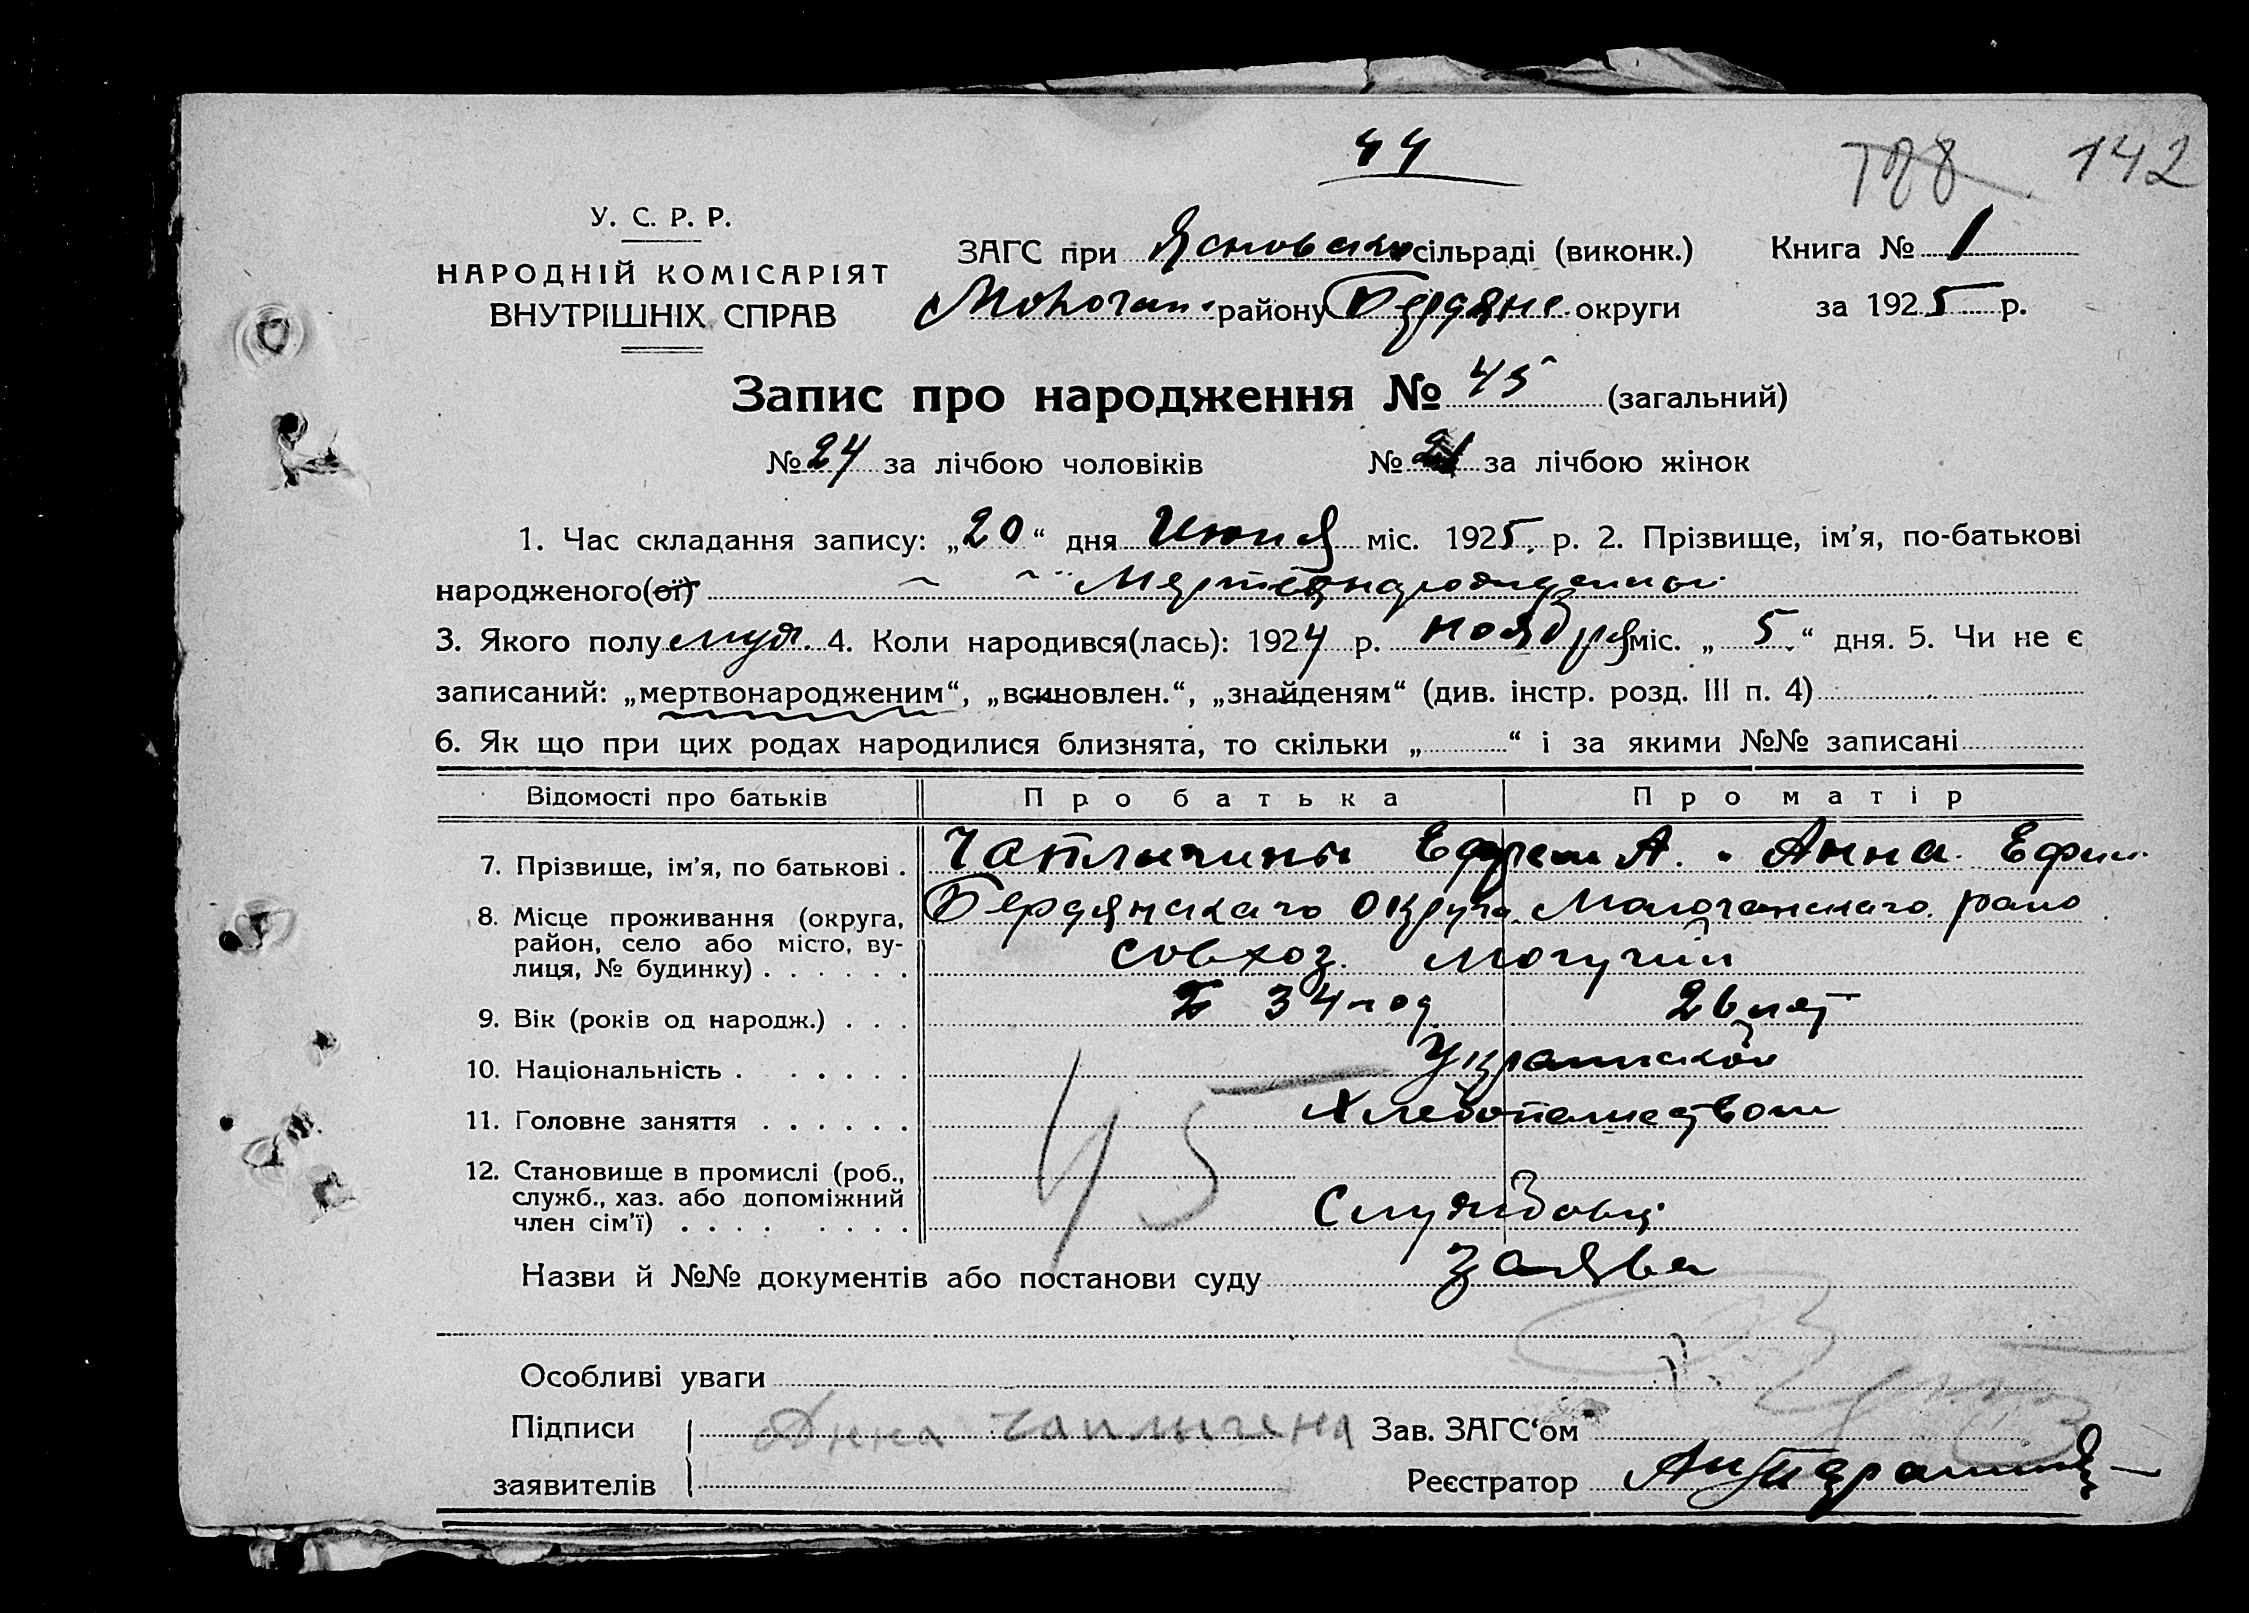 44
128 142
У. С. Р. Р.
НАРОДНІЙ КОМІСАРІЯТ
ВНУТРІШНІХ СПРАВ
ЗАГС при Ясновском сільраді (виконк.) Книга № 1
Молочан. району Бердянс. округи за 1925 р.
Запис про народження № 45 (загальний)
№ 24 за лічбою чоловіків № 21 за лічбою жінок
1. Час складання запису: „20“ дня Июня міс. 1925 р. 2. Прізвище, ім’я, по-батькові
народженого(ої)
3. Якого полу муж. 4. Коли народився(лась): 1924 р. ноября міс. „5“ дня. 5. Чи не є
записаний: „мертвонародженим“, „всиновлен.“, „знайденям“ (див. інстр. розд. III п. 4)
6. Як що при цих родах народилися близнята, то скільки „ “ і за якими №№ записані
Відомості про батьків Про батька Про матір
7. Прізвище, ім’я, по батькові . Чаплыгины Ефрем А. Анна Ефим.
8. Місце проживання (округа, Бердянскаго Округа Молочанскаго рано
район, село або місто, ву-
лиця, № будинку) . . . . . . совхоз. Могучий
9. Вік (років од народж.) . . . 34 год 26 лет
10. Національність . . . . . . Украинской
11. Головне заняття . . . . . . Хлебопашеством
45
12. Становище в промислі (роб.,
служб., хаз. або допоміжний
член сім’ї) . . . . . . . . Служ
Назви й №№ документів або постанови суду заява
Особливі уваги
Підписи Анна Чаплыгена Зав. ЗАГС‘ом
заявителів Реєстратор